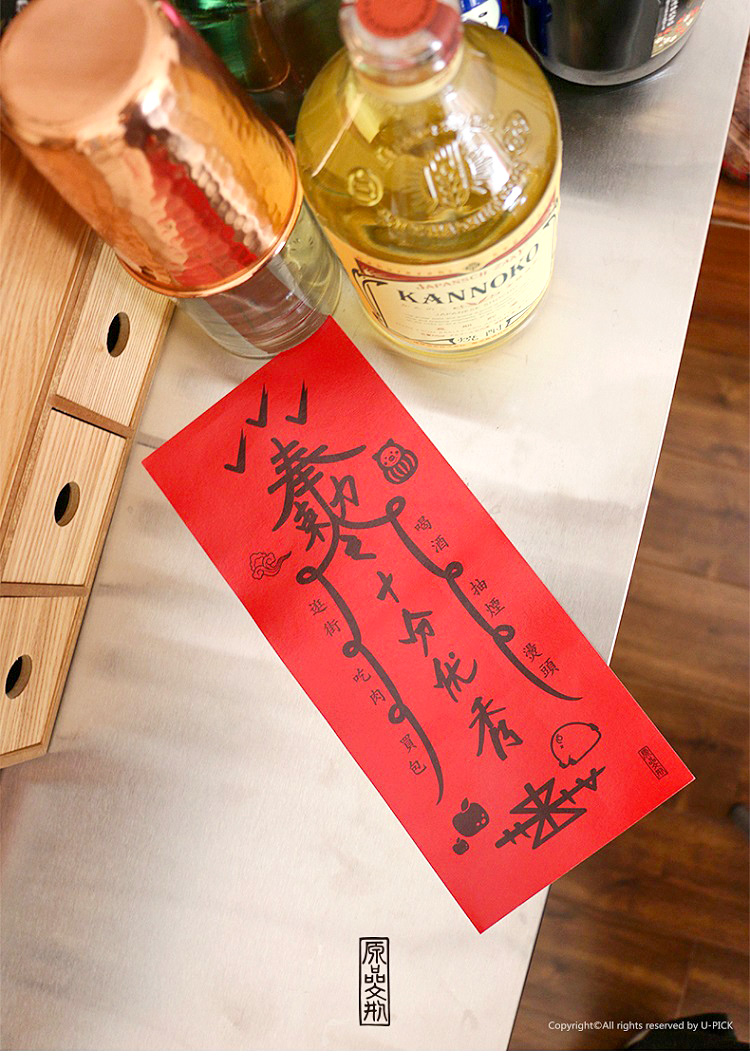 JAPANSCH EAST
KANNOKO
奉
十分优秀
喝酒
抽煙
燙頭
逛街
吃肉
買包
原品文創
Copyright©All rights reserved by U-PICK